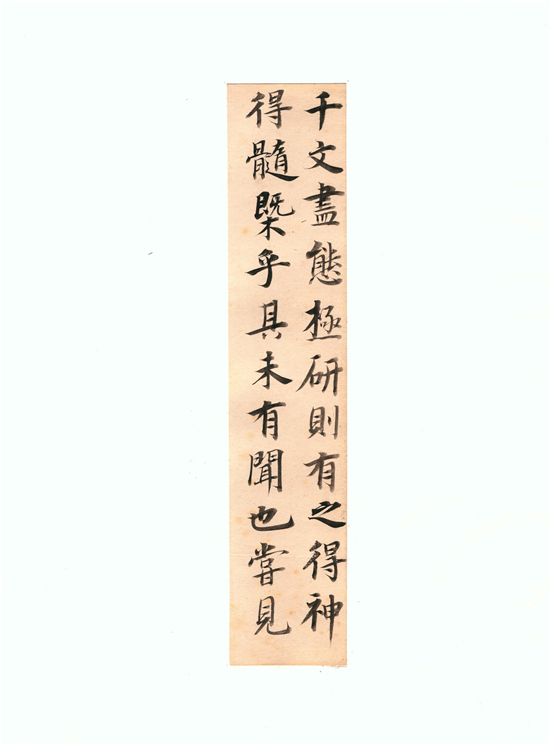 千文盡態極研則有之得神
得髓槩乎其未有聞也嘗見